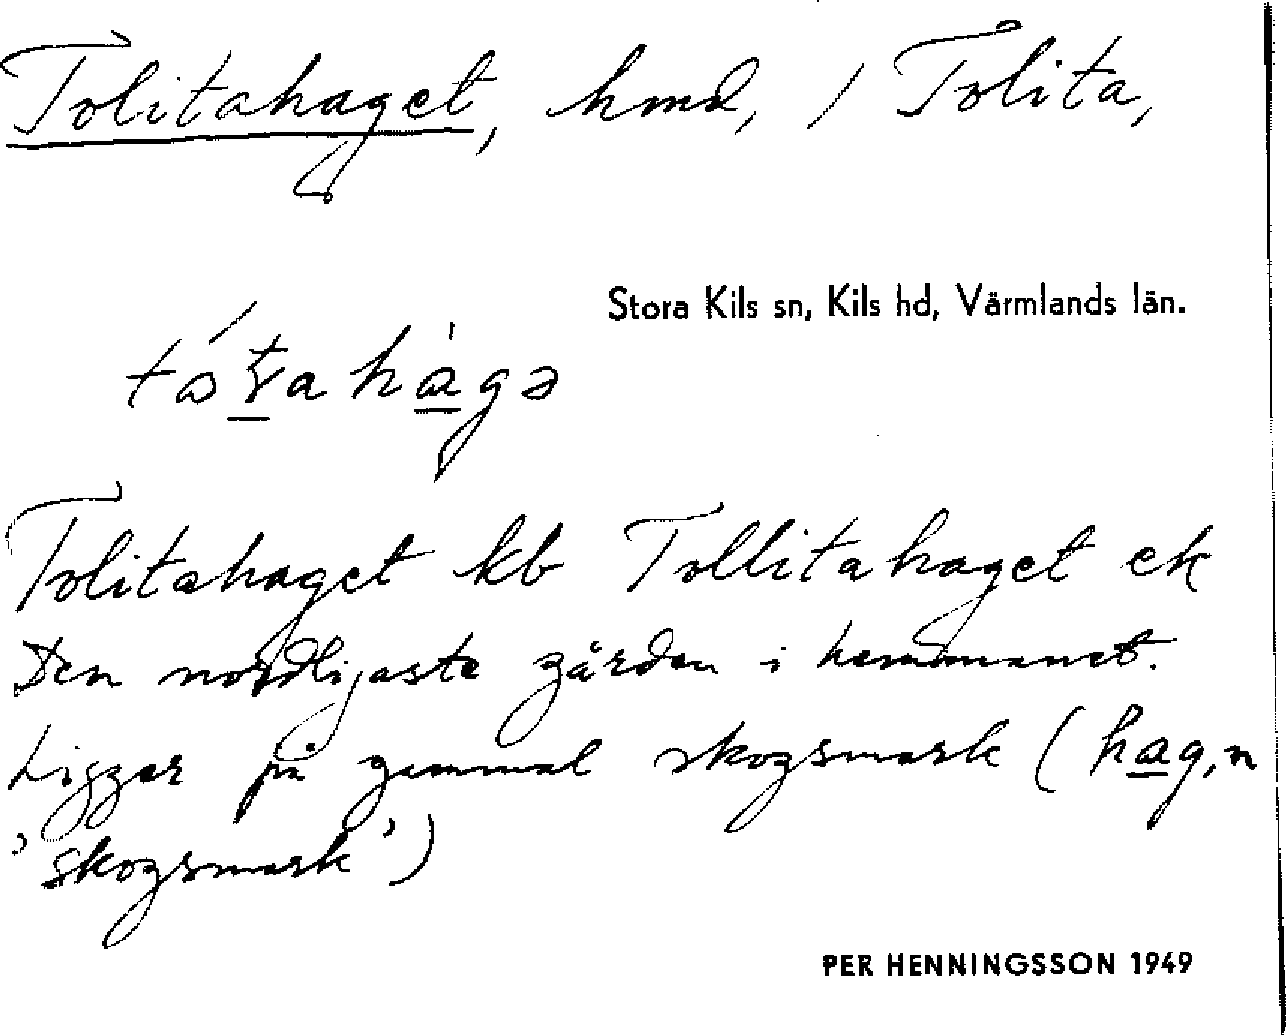 Tolitahaget, hmd, / Tolita,
Stora Kils sn, Kils hd, Värmlands län.
Tolitahaget kb Tollitahaget ek
Den nordligaste gården i hemmanet.
Ligger på gammal skogsmark (hag, n
'skogsmark')
PER HENNINGSSON 1949